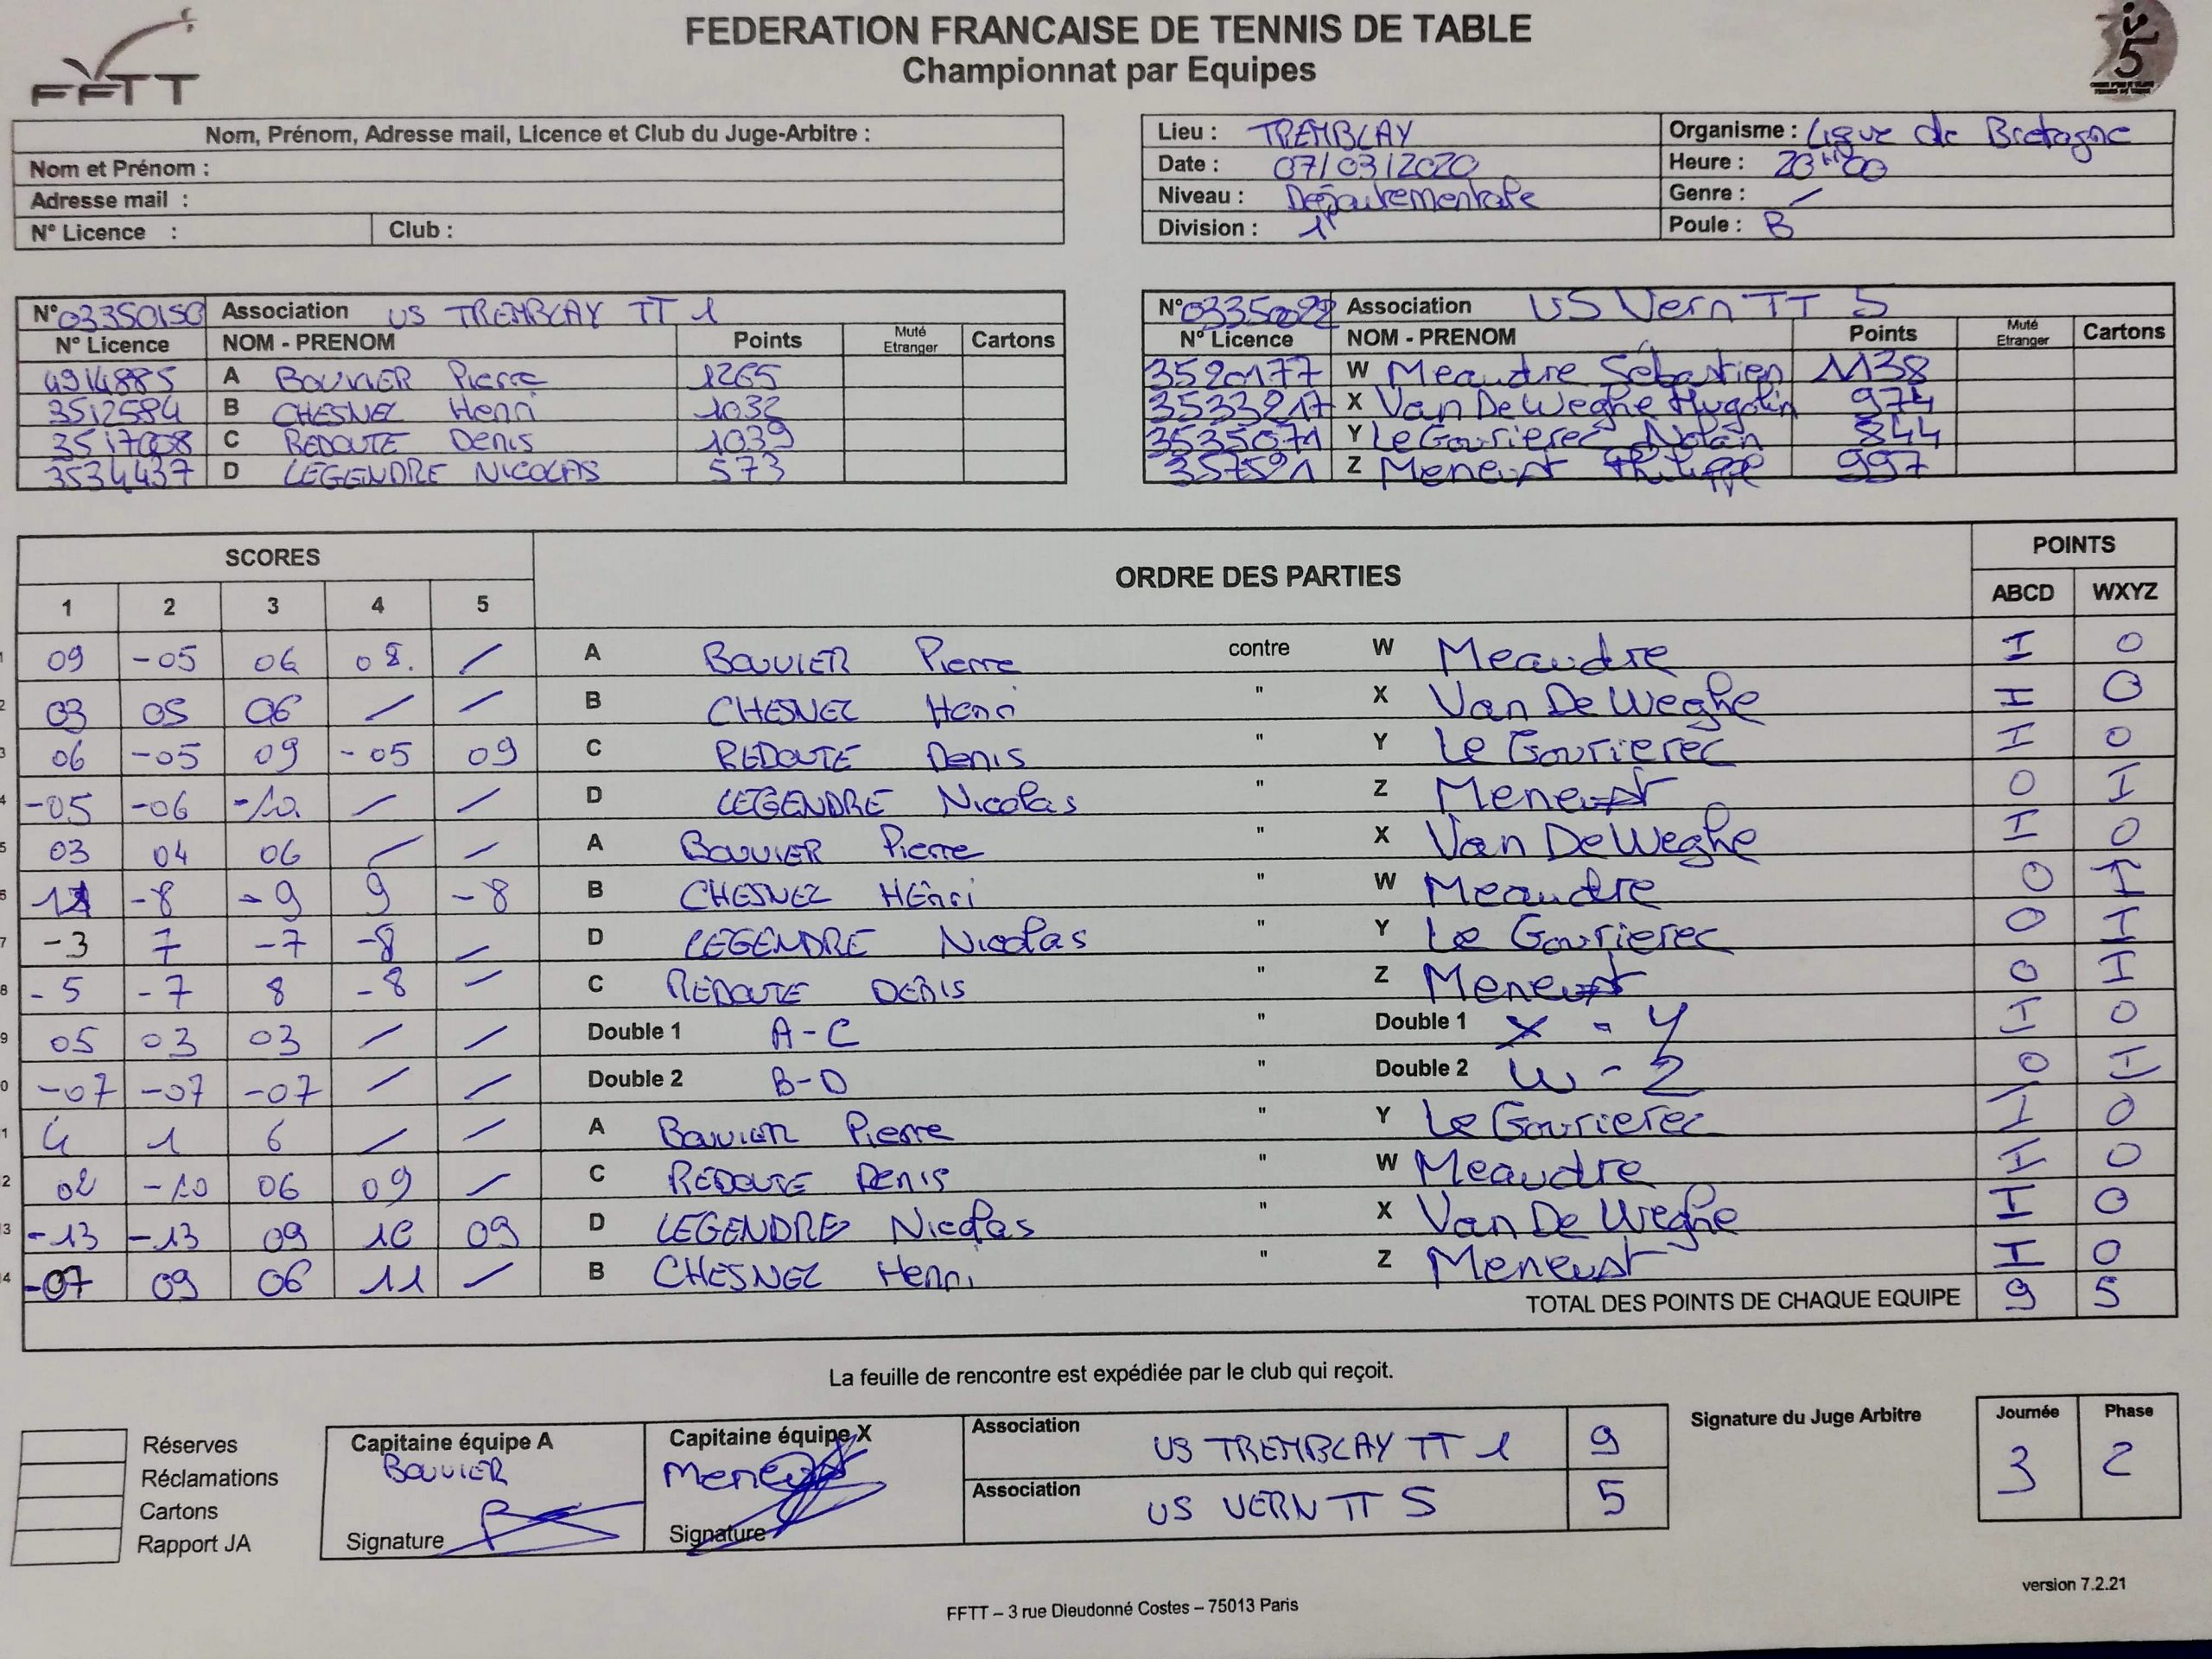 FFTT
FEDERATION FRANCAISE DE TENNIS DE TABLE
Championnat par Equipes
Nom, Prénom, Adresse mail, Licence et Club du Juge-Arbitre :
Nom et Prénom :
Adresse mail :
N° Licence : Club :
Lieu : TREMBLAY Organisme : Ligue de Bretagne
Date : 07/03/2020 Heure : 20H00
Niveau : Départementale Genre : /
Division : 1 Poule : B
N° 03350150 Association US TREMBLAY TT 1
N° Licence NOM - PRENOM Points Muté Etranger Cartons
4914885 A BOUVIER Pierre 1265
3512584 B CHESNEL Henri 1032
3517008 C REDOUTE Denis 1039
3534437 D LEGENDRE NICOLAS 573
N° 03350022 Association US Vern TT 5
N° Licence NOM - PRENOM Points Muté Etranger Cartons
3520177 W Meaudre Sébastien 1138
3533217 X Van De Weghe Hugolin 974
3535071 Y Le Gourierec Nolan 844
357521 Z Meneust Philippe 997
SCORES ORDRE DES PARTIES POINTS
1 2 3 4 5 ABCD WXYZ
1 09 -05 06 08. / A BOUVIER Pierre contre W Meaudre I 0
2 03 05 06 / / B CHESNEL Henri " X Van De Weghe I 0
3 06 -05 09 -05 09 C REDOUTE Denis " Y Le Gourierec I 0
4 -05 -06 -10 / / D LEGENDRE Nicolas " Z Meneust 0 I
5 03 04 06 / / A BOUVIER Pierre " X Van De Weghe I 0
-8 -9 9 -8 B CHESNEL HENri " W Meaudre 0 I
7 -3 7 -7 -8 / D LEGENDRE Nicolas " Y Le Gourierec 0 I
8 -5 -7 8 -8 / C REDOUTE DENIS " Z Meneust 0 I
9 05 03 03 / / Double 1 A-C " Double 1 X - Y I 0
0 -07 -07 -07 / / Double 2 B-D " Double 2 W - Z 0 I
1 4 1 6 / / A BOUVIER Pierre " Y Le Gourierec I 0
2 02 -10 06 09 / C REDOUTE Denis " W Meaudre I 0
13 -13 -13 09 10 09 D LEGENDRE Nicolas " X Van De Weghe I 0
4 -07 09 06 11 / B CHESNEL Henri " Z Meneust I 0
TOTAL DES POINTS DE CHAQUE EQUIPE 9 5
La feuille de rencontre est expédiée par le club qui reçoit.
Réserves
Réclamations
Cartons
Rapport JA
Capitaine équipe A
BOUVIER
Signature
Capitaine équipe X
Meneust
Signature
Association US TREMBLAY TT 1 9
Association US VERN TT 5 5
Signature du Juge Arbitre
Journée Phase
3 2
version 7.2.21
FFTT – 3 rue Dieudonné Costes – 75013 Paris